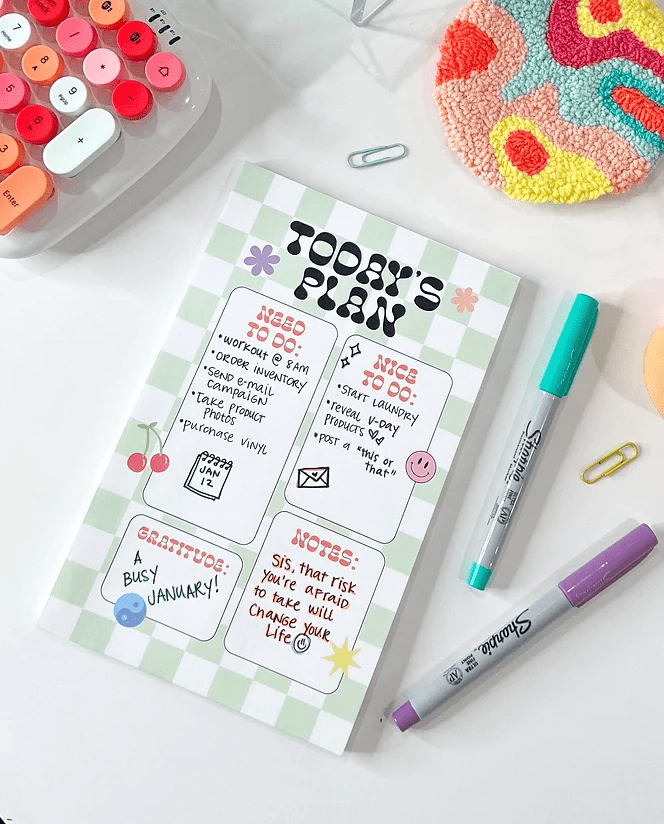 7
Home
8
9
PgUp
+
5
6
3
Enter
*
TODAY'S
PLAN
NEED
TO DO:
•WORKOUT @ 8AM
•ORDER INVENTORY
•SEND E-MAIL
CAMPAIGN
•TAKE PRODUCT
PHOTOS
•PURCHASE VINYL
JAN
12
NICE
TO DO:
•START LAUNDRY
•REVEAL V-DAY
PRODUCTS
•POST A "THIS OR
THAT"
GRATITUDE:
A
BUSY
JANUARY!
NOTES:
Sis, that risk
you're afraid
to take will
Change your
Life
Sharpie
Sharpie
ULTRA
FINE
POINT
AP